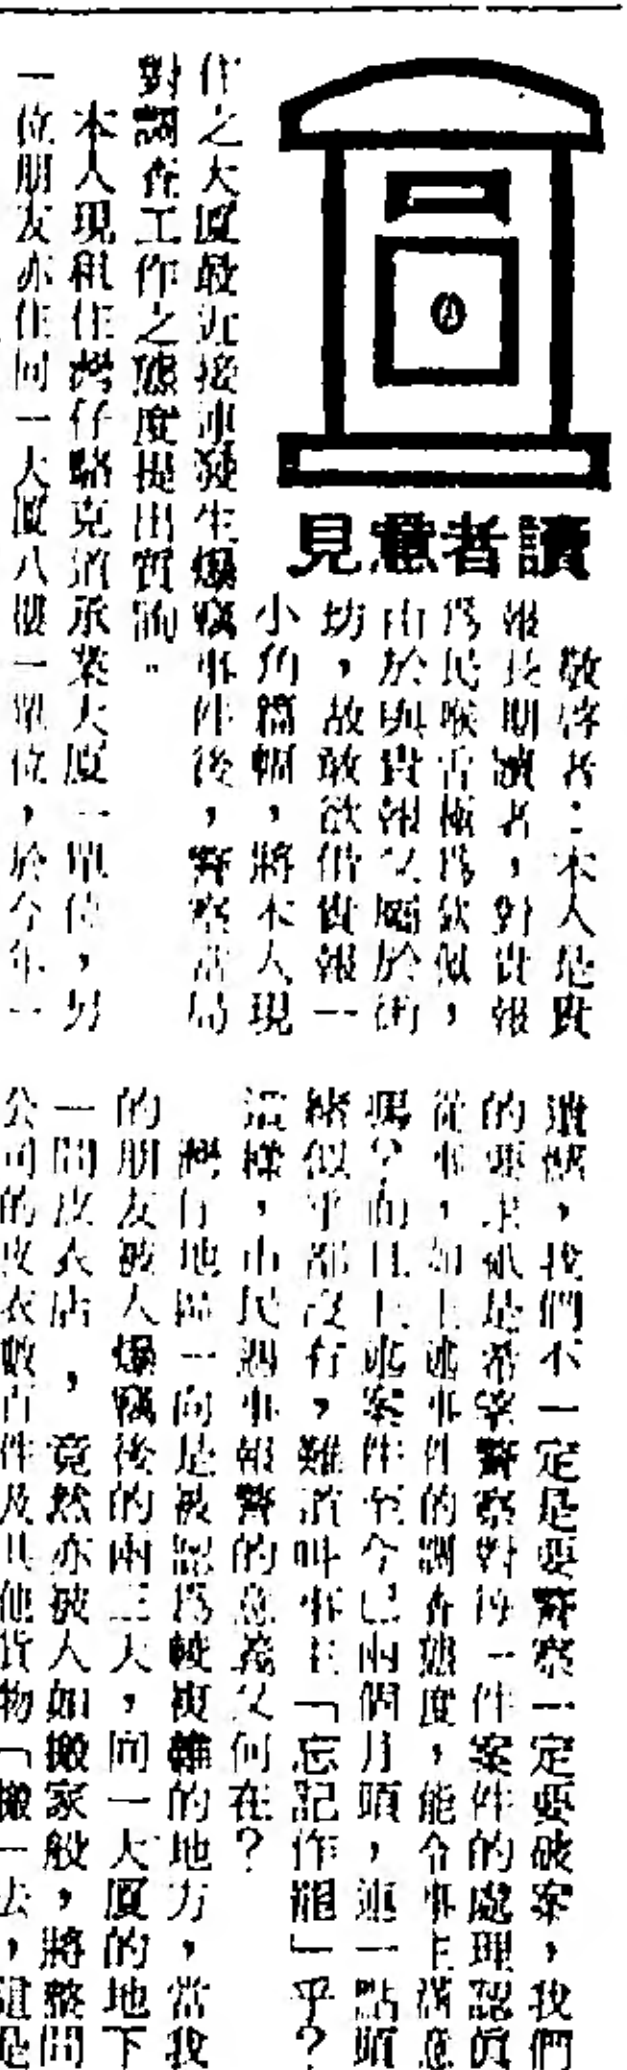 讀者意見
敬啓者：本人是貴
報長期讀者，對貴報
爲民喉舌極爲欽佩，
由於與貴報又屬於街
坊，故敢欲借貴報一
小角篇幅，將本人現
住之大厦最近接連發生爆竊事件後，警察當局
對調查工作之態度提出質詢。
本人現租住灣仔駱克道承業大厦一單位，另
一位朋友亦住同一大厦八樓一單位，於今年一
遺憾，我們不一定是要警察一定要破案，我們
的要求祇是希望警察對每一件案件的處理認眞
從事，如上述事件的調查態度，能令事主滿意
嗎？而且上述案件至今已兩個月頭，連一點頭
緒似乎都沒有，難道叫事主「忘記作罷」乎？
這樣，市民遇事報警的意義又何在？
灣仔地區一向是被認爲較複雜的地方，當我
的朋友被人爆竊後的兩三天，同一大厦的地下
一間皮衣店，竟然亦被人如搬家般，將整間
公司的皮衣數百件及其他貨物「搬」去，這是